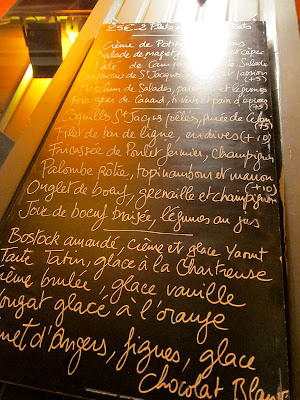 25€ - 2 Plats
Crème de Poti
Salade de magret cèpes
Pâté de Salade
Carpaccio de St Jacques, passion
(+5)
Mesclun de Salades, parmesan et légumes
Foie gras de Canard, et pain d'épices
(+5)
Coquilles St Jacques poêlées, purée de Céleri
(+5)
Filet de bar de ligne, endives (+10)
Fricassée de Poulet fermier, champignons
Palombe rôtie, topinambours et marrons
(+10)
Onglet de boeuf, grenaille et champignons
Joue de boeuf braisée, légumes au jus
Bostock amandé, crème et glace Yaourt
Tatin, glace à la Chartreuse
brulée, glace vanille
ougat glacé à l'orange
d'Angers, figues, glace
Chocolat Blanc